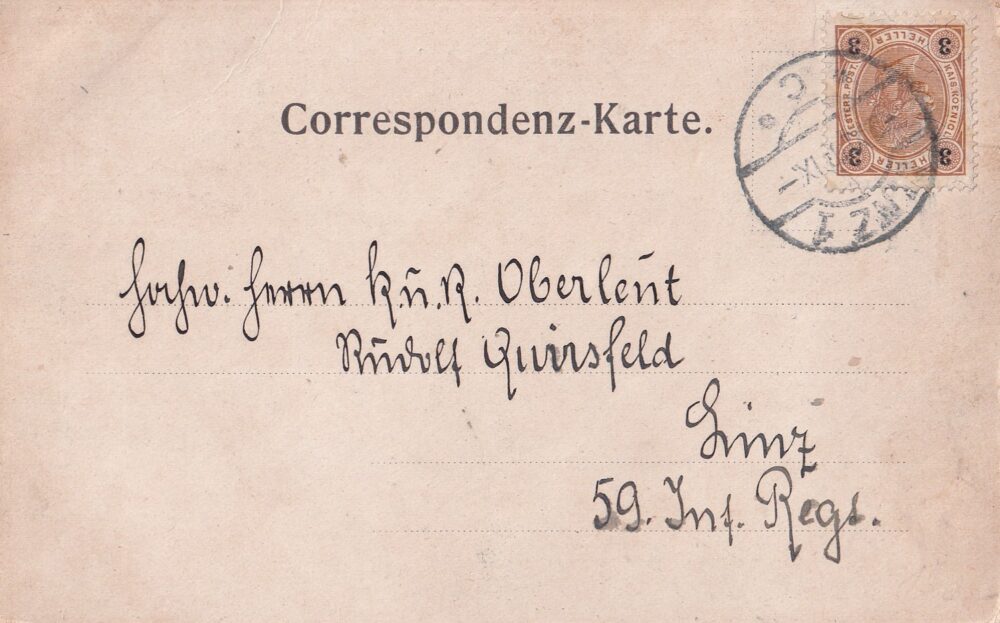 Correspondenz-Karte.
3 HELLER 3
KAIS. KOENIGL. OESTERR. POST.
3 HELLER 3
LINZ 1
IX
C
Hochw. Herrn K. u. K. Oberleut
Rudolf Quirsfeld
Linz
59. Inf. Regt.